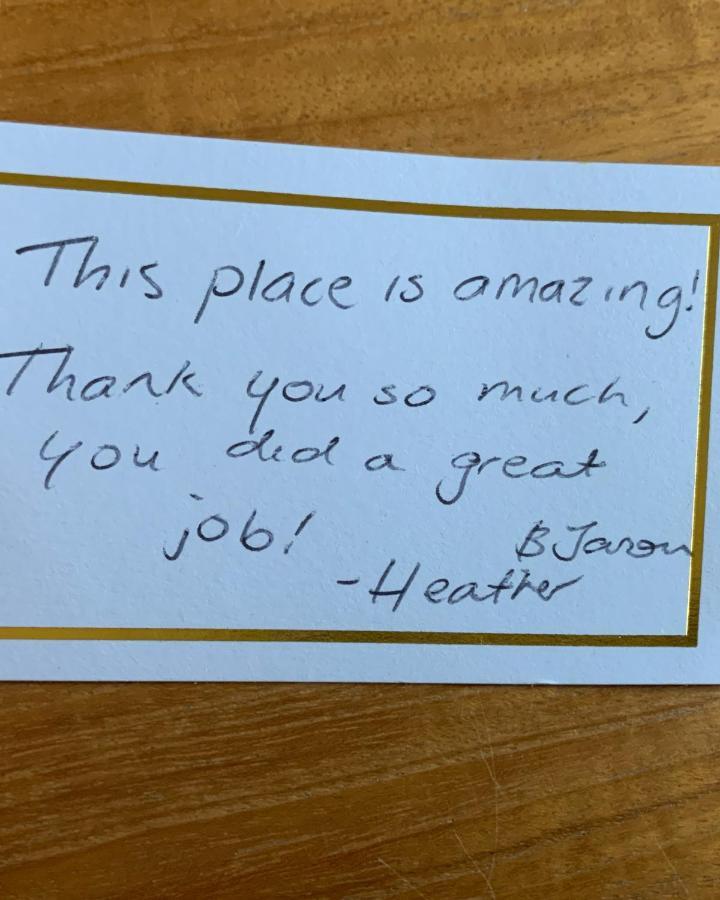 This place is amazing!
Thank you so much,
you did a great
job!
& Jason
-Heather